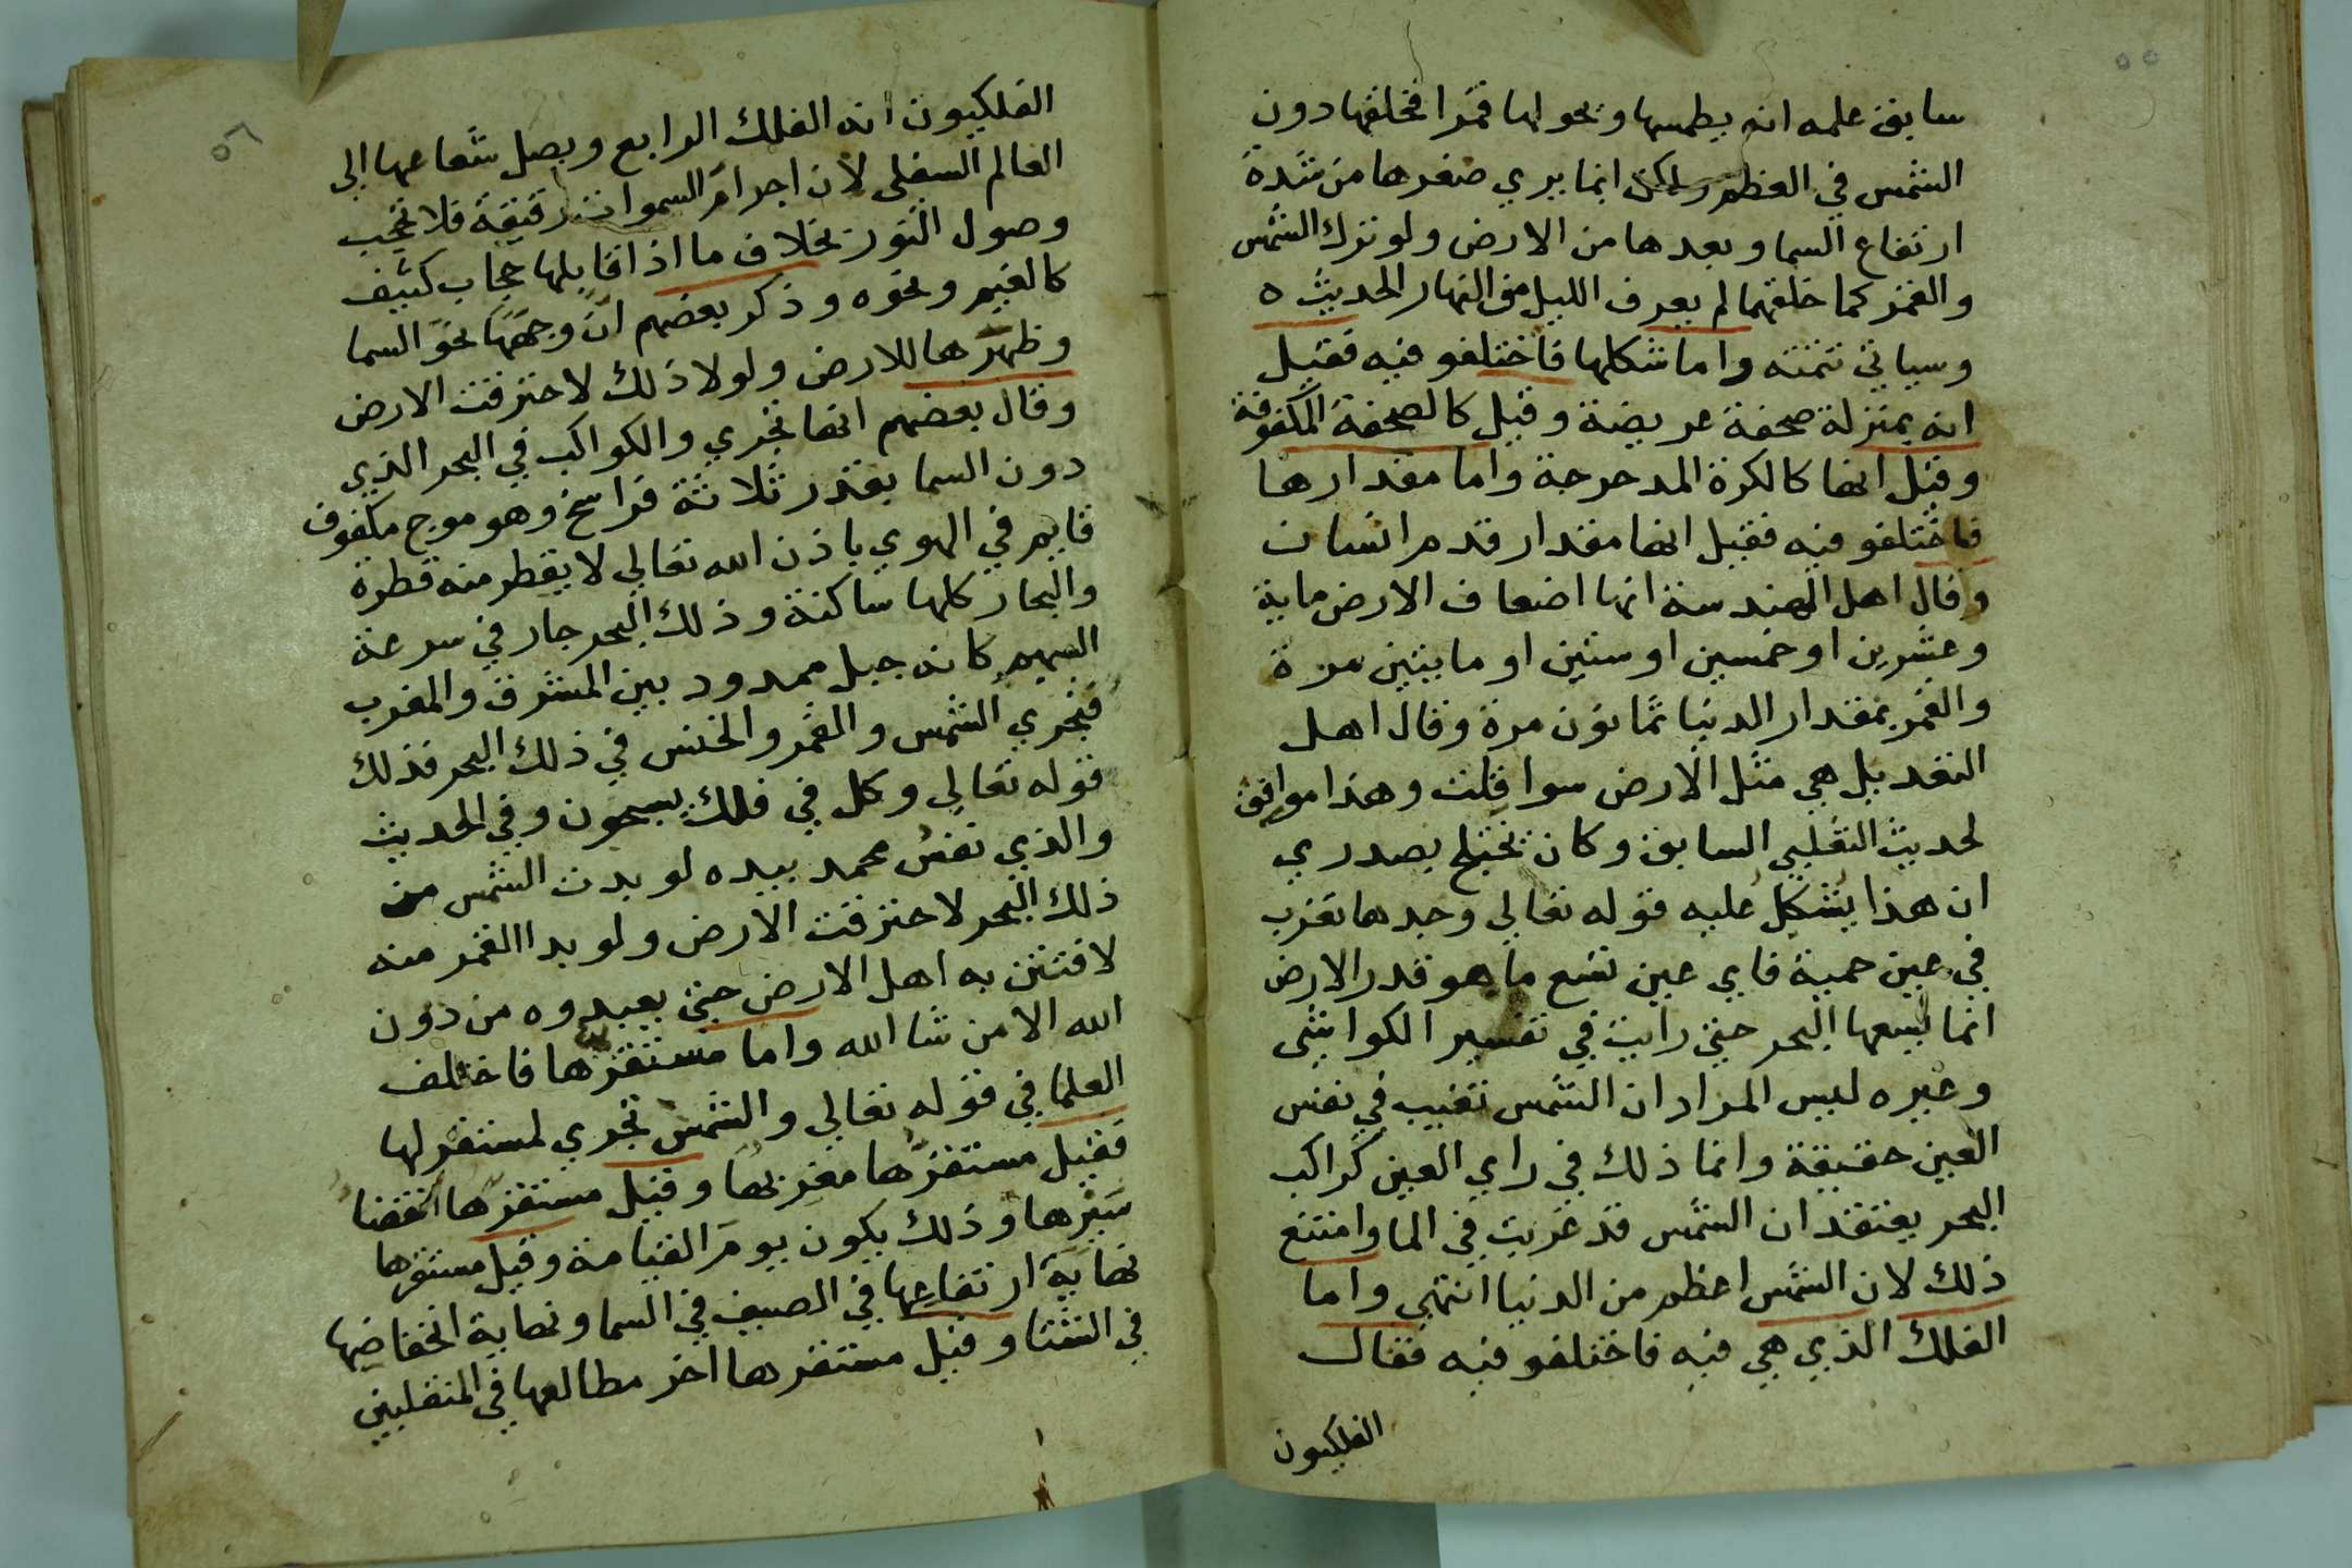 سابق علمه انه يطمسها ويحولها قمرا فخلقها دون
الشمس في العظم ولكن انما يري صغرها من شدة
ارتفاع السما وبعدها من الارض ولو ترك الشمس
والقمر كما خلقهما لم يعرف الليل من النهار الحديث ه
وسياتي تتمته واما شكلها فاختلفو فيه فقيل
انه بمنزلة صحفة عريضة وقيل كالصحفة المكفوفة
وقيل انها كالكرة المدحرجة واما مقدارها
فاختلفو فيه فقيل انها مقدار قدم انسان
وقال اهل الهندسة انها اضعاف الارض ماية
وعشرين او خمسين او ستين او مايتين مرة
والقمر بمقدار الدنيا ثمانون مرة وقال اهل
التعديل هي مثل الارض سوا قلت وهذا موافق
لحديث الثعلبي السابق وكان يختلج بصدري
ان هذا يشكل عليه قوله تعالي وجدها تغرب
في عين حمية فاي عين تسع ما هو قدر الارض
انما يسعها البحر حتي رايت في تفسير الكواشي
وغيره ليس المراد ان الشمس تغيب في نفس
العين حقيقة وانما ذلك في راي العين كراكب
البحر يعتقد ان الشمس قد غربت في الما وامتنع
ذلك لان الشمس اعظم من الدنيا انتهي واما
الفلك الذي هي فيه فاختلفو فيه فقال
الفلكيون
الفلكيون انه الفلك الرابع ويصل شعاعها الي
العالم السفلي لان اجرام السموات رقيقة فلا تحجب
وصول النور بخلاف ما اذا قابلها حجاب كثيف
كالغيم ونحوه وذكر بعضهم ان وجهها نحو السما
وظهرها للارض ولولا ذلك لاحترقت الارض
وقال بعضهم انها تجري والكواكب في البحر الذي
دون السما بقدر ثلاثة فراسخ وهو موج مكفوف
قايم في الهوي باذن الله تعالي لا يقطر منه قطرة
والبحار كلها ساكنة وذلك البحر جار في سرعة
السهم كانه جبل ممدود بين المشرق والمغرب
فتجري الشمس والقمر والخنس في ذلك البحر فذلك
قوله تعالي وكل في فلك يسبحون وفي الحديث
والذي نفس محمد بيده لو بدت الشمس من
ذلك البحر لاحترقت الارض ولو بدا القمر منه
لافتتن به اهل الارض حتي يعبدوه من دون
الله الا من شا الله واما مستقرها فاختلف
العلما في قوله تعالي والشمس تجري لمستقر لها
فقيل مستقرها مغربها وقيل مستقرها انقضا
سيرها وذلك يكون يوم القيامة وقيل مستقرها
نهاية ارتفاعها في الصيف في السما ونهاية انخفاضها
في الشتا وقيل مستقرها اخر مطالعها في المنقلبين